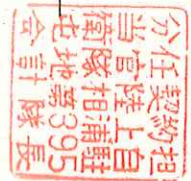 分任契約担
当官陸上自
衛隊相浦駐
屯地第395
会計隊長